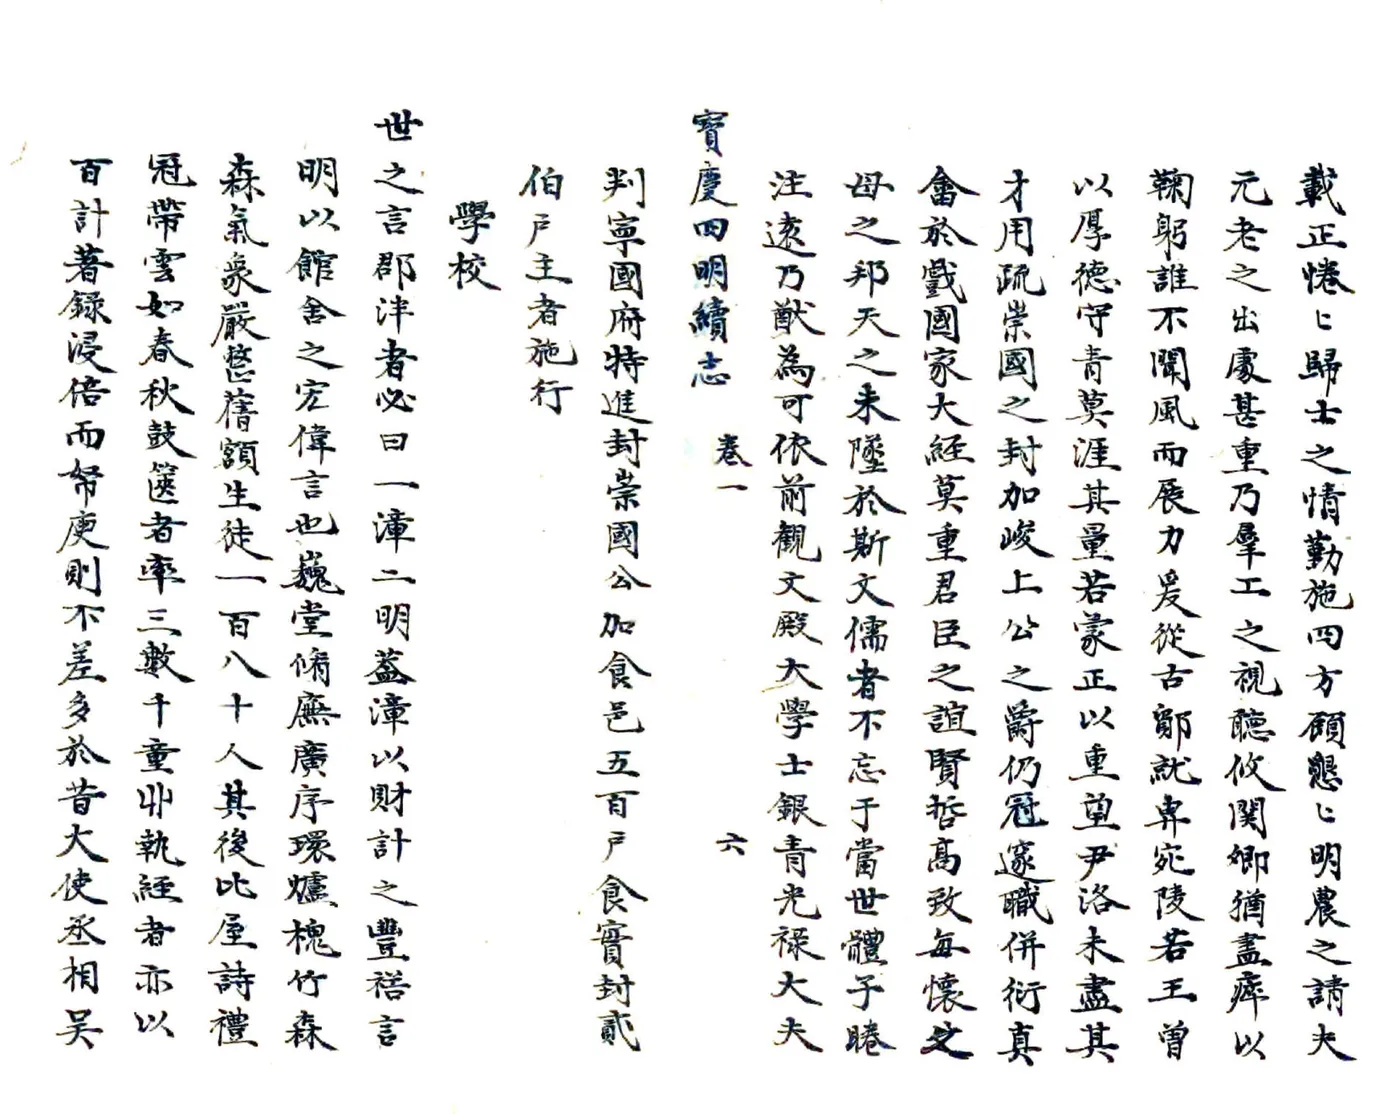 載正惓〻歸士之情勤施四方顧懇〻明農之請夫
元老之出處甚重乃羣工之視聽攸関卿猶盡瘁以
鞠躬誰不聞風而展力爰從古鄮就畀宛陵若王曾
以厚德守青莫涯其量若蒙正以重望尹洛未盡其
才用疏崇國之封加峻上公之爵仍冠邃職併衍真
畬於戲國家大經莫重君臣之誼賢哲高致每懷父
母之邦天之未墜於斯文儒者不忘于當世體予睠
注遠乃猷為可依前觀文殿大學士銀青光禄大夫
寶慶四明續志 卷一 六
判寧國府特進封崇國公加食邑五百戶食實封貳
伯戶主者施行
學校
世之言郡泮者必曰一漳二明蓋漳以財計之豐裕言
明以館舍之宏偉言也巍堂脩廡廣序環爐槐竹森
森氣象嚴整舊額生徒一百八十人其後比屋詩禮
冠帶雲如春秋鼓篋者率三數千童丱執經者亦以
百計著録浸倍而帑庾則不差多於昔大使丞相吴